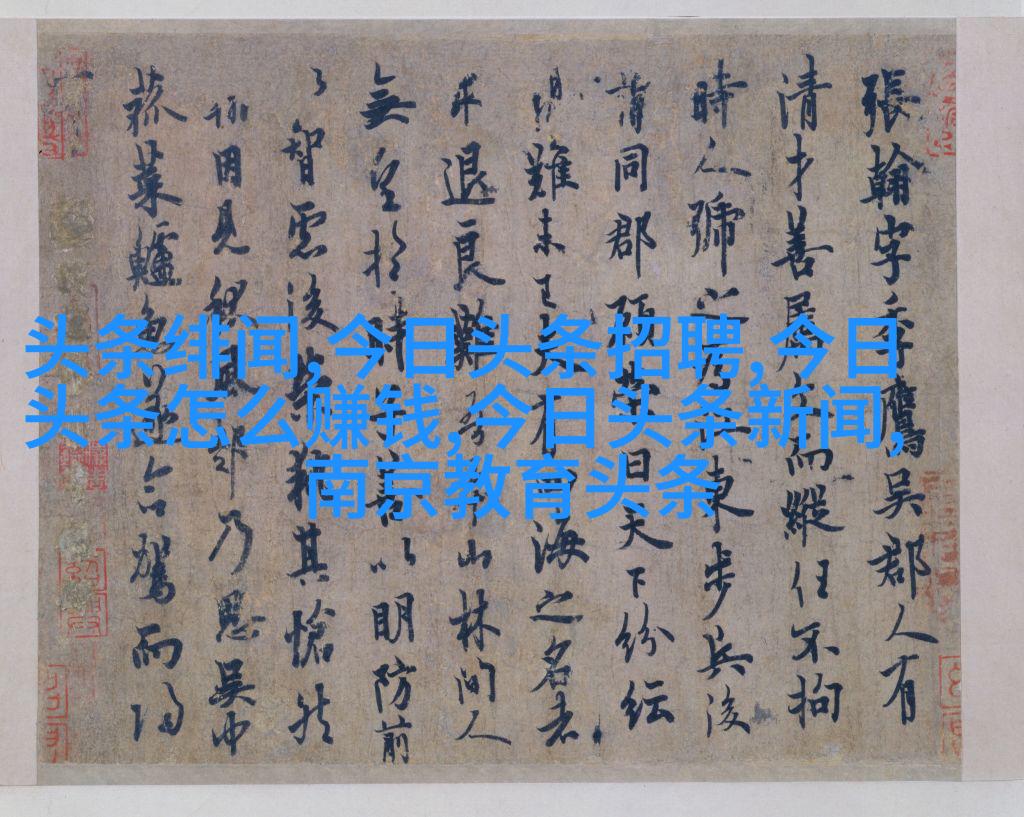 張翰字季鷹吳郡人有
清才善屬文而縱任不拘
時人號之為江東步兵後
謂同郡顧榮曰天下紛紜
難未已夫有四海之名者
求退良難吾本山林間人
無望於時子善以明防前
以智慮後榮執其愴然
翰因見秋風起乃思吳中
菰菜鱸魚遂命駕而歸
头条绯闻,今日头条招聘,今日
头条怎么赚钱,今日头条新闻,
南京教育头条